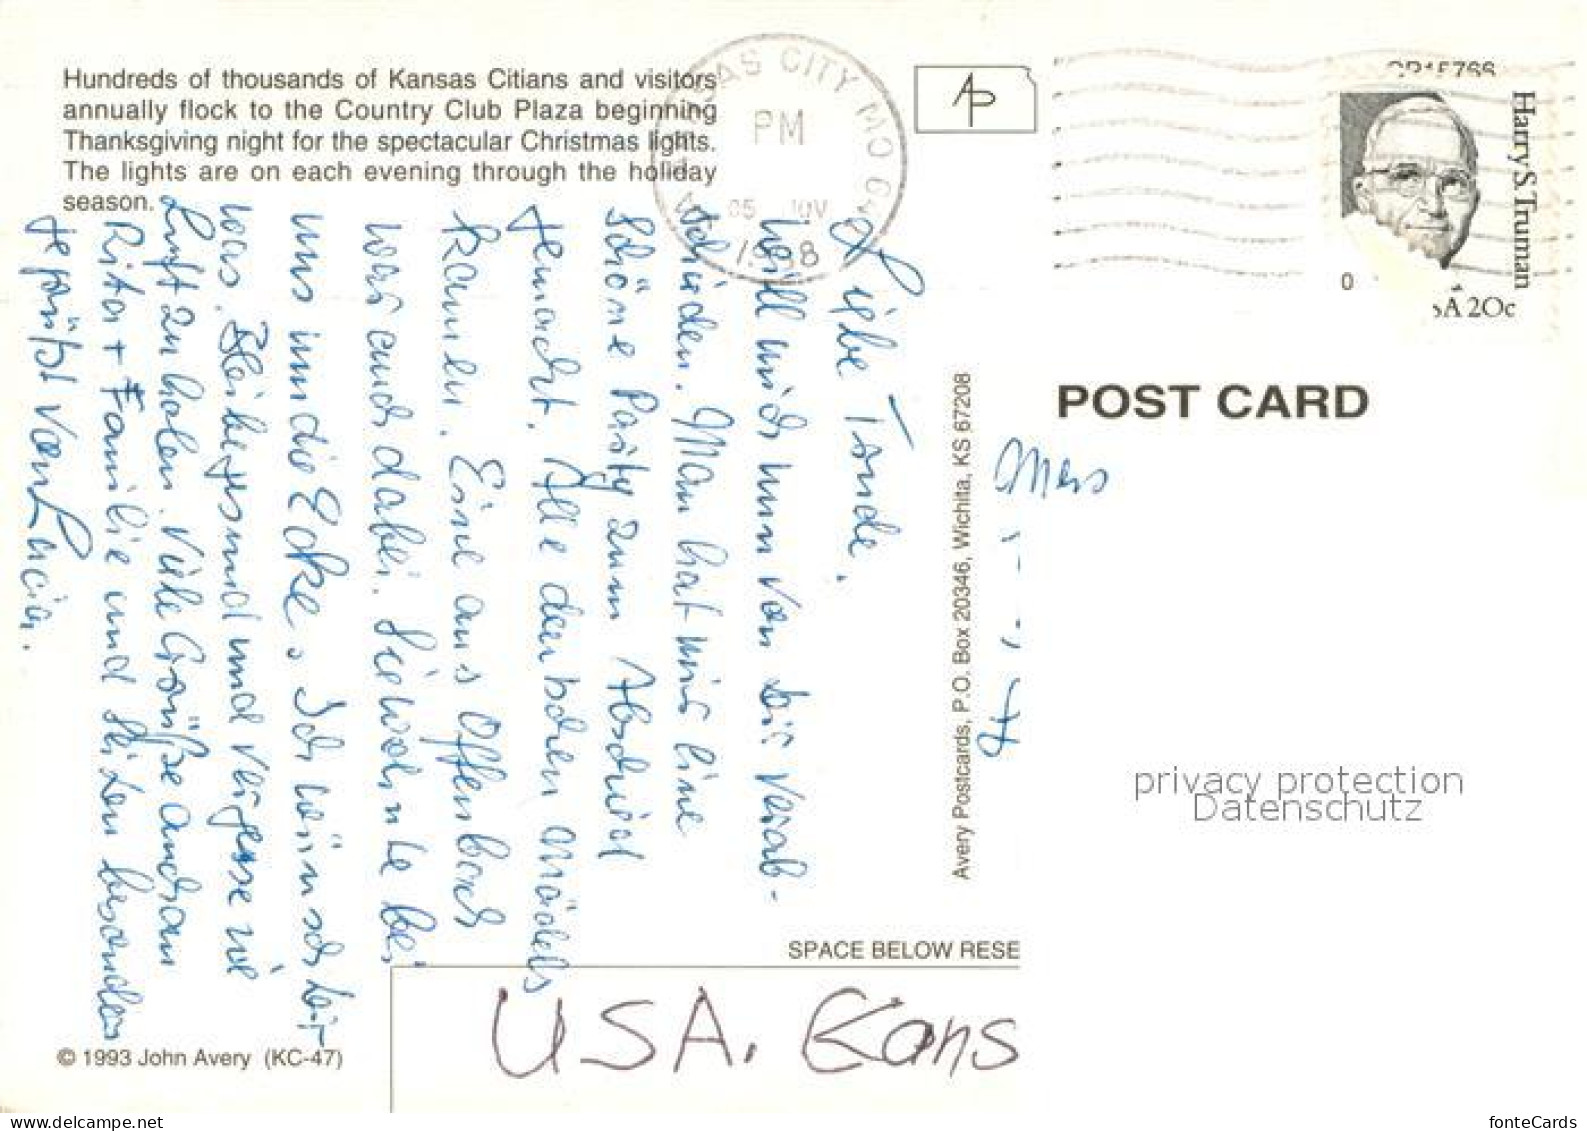 Hundreds of thousands of Kansas Citians and visitors
annually flock to the Country Club Plaza beginning
Thanksgiving night for the spectacular Christmas lights.
The lights are on each evening through the holiday
season.
AS CITY MO
PM
05
AP
Harry S. Truman
0
A 20c
POST CARD
Liebe Trude.
will mich nun von Dir verab-
schieden. Man hat uns eine
schöne Party zum Abschied
gemacht. Alle deutschen Mädels
kamen. Eine aus Offenbach
war auch dabei. Sie wohnte bei
uns um die Ecke. Ich wünsch Dir
was. Bleibe gesund und vergesse nie
Luft zu holen. Viele Grüße auch an
Rita + Familie und sei Du besonders
gegrüßt von Lucia.
Avery Postcards, P.O. Box 20346, Wichita, KS 67208
privacy protection
Datenschutz
SPACE BELOW RESE
USA. Kans
© 1993 John Avery (KC-47)
www.delcampe.net
fonteCards